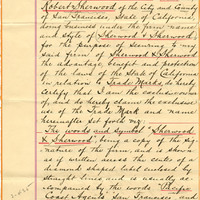 Robert Sherwood of the City and County
of San Francisco, State of California,
doing business under the firm name
and style of Sherwood & Sherwood
for the purpose of securing to my
said firm of Sherwood & Sherwood
the advantage, benefit and protection
of the laws of the State of California
in relation to Trade Marks, do hereby
certify that I am the exclusive owner
of, and do hereby claim the exclusive
use of the Trade Mark and name
hereinafter set forth viz:
The words and symbol "Sherwood
& Sherwood", being a copy of the sig-
nature of the firm, and is shown
as if written across the center of a
diamond shaped label enclosed by
straight lines and is usually ac-
companied by the words "Pacific
Coast Agents San Francisco and